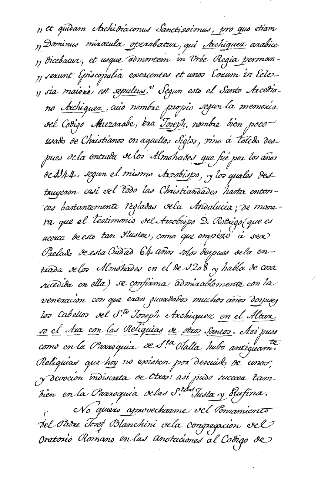 " et quidam Archidiaconus Sanctissimus, pro quo etiam
" Dominus miracula operabatur, qui Archiquez arabice
" dicebatur, et usque ad mortem in Urbe Regia perman-
" serunt Episcopalia exercentes et unus eorum in Ecle-
" cia maiori est sepultus. Segun esto el Santo Arcedia-
no Archiquez, cuio nombre propio segun la memoria
del Codigo Muzarabe, era Joseph, nombre bien pocо
usado de Christianos en aquellos Siglos, vino á Toledo des-
pues de la entrada de los Almohades que fué por los años
de 1144. segun el mismo Arzobispo, y los quales des-
truyeron casi del todo las Christiandades hasta enton-
ces bastantemente regladas de la Andalucia; de mane-
ra que el testimonio del Arzobispo D. Rodrigo (que es
acerca de esto tan Ilustre, como que empezó á ser
Prelado de esta Ciudad 64 años solos despues de la en-
trada de los Almohades en el de 1208 y habla de cosa
sucedida en ella) se confirma admirablemente con la
veneracion con que eran guardados muchos años despues
los Cabellos del Sto. Joseph Archiquez en el Altar,
so el Ara con las Reliquias de otros Santos. Asi pues
como en la Parroquia de Sta. Olalla hubo antiguamte.
Reliquias que hoy no existen por descuido de unos,
y devocion indiscreta de otros: asi pudo suceder tam-
bien en la Parroquia de las Stas. Justa y Rufina.
No quiero aprovecharme del Pensamiento
del Padre Josef Blanchini de la Congregacion del
Oratorio Romano en las Anotaciones al Codigo de